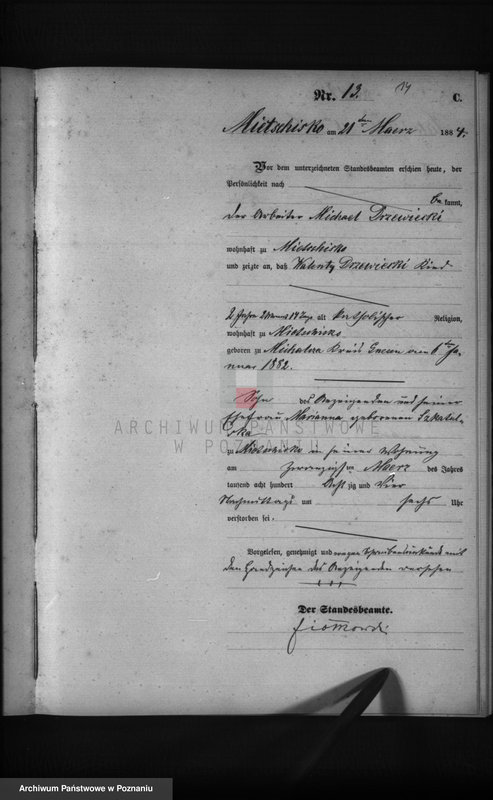 Nr. 13. 14 C.
Mietschisko am 21 ten Maerz 1884.
Vor dem unterzeichneten Standesbeamten erschien heute, der
Persönlichkeit nach
be kannt,
der Arbeiter Michael Drzewiecki
wohnhaft zu Mietschisko
und zeigte an, daß Walenty Drzewiecki Kind
2 Jahre 2 Monat 14 Tage alt katholischer Religion,
wohnhaft zu Mietschisko
geboren zu Kreis Gnesen am 6 ten Ja-
nuar 1882.
Sohn des Anzeigenden und seiner
Ehefrau Marianna geborenen
zu Mietschisko in seiner Wohnung
am zwanzigsten Maerz des Jahres
tausend acht hundert Acht zig und Vier
Nachmittags um sechs Uhr
verstorben sei.
Vorgelesen, genehmigt und wegen Schreibensunkunde mit
den Handzeichen des Anzeigenden versehen
+++
Der Standesbeamte.
ARCHIWUM PAŃSTWOWE
W POZNANIU
Archiwum Państwowe w Poznaniu